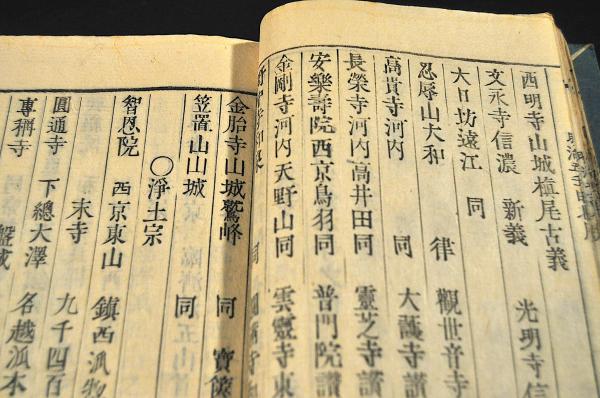 西明寺山城槇尾古義
文永寺信濃 新義 光明寺信
大日坊遠江 同
忍辱山大和 律 觀世音寺
高貴寺河内 同 大護寺讃
長榮寺河内高井田同 靈芝寺讃
安樂壽院西京鳥羽同 普門院讃
金剛寺河内天野山同 雲靈寺東
金胎寺山城鷲峰 同 寶篋
笠置山山城 同
○淨土宗
智恩院 西京東山 鎮西派惣
末寺 九千四百
圓通寺 下總大澤 名越派本
專稱寺